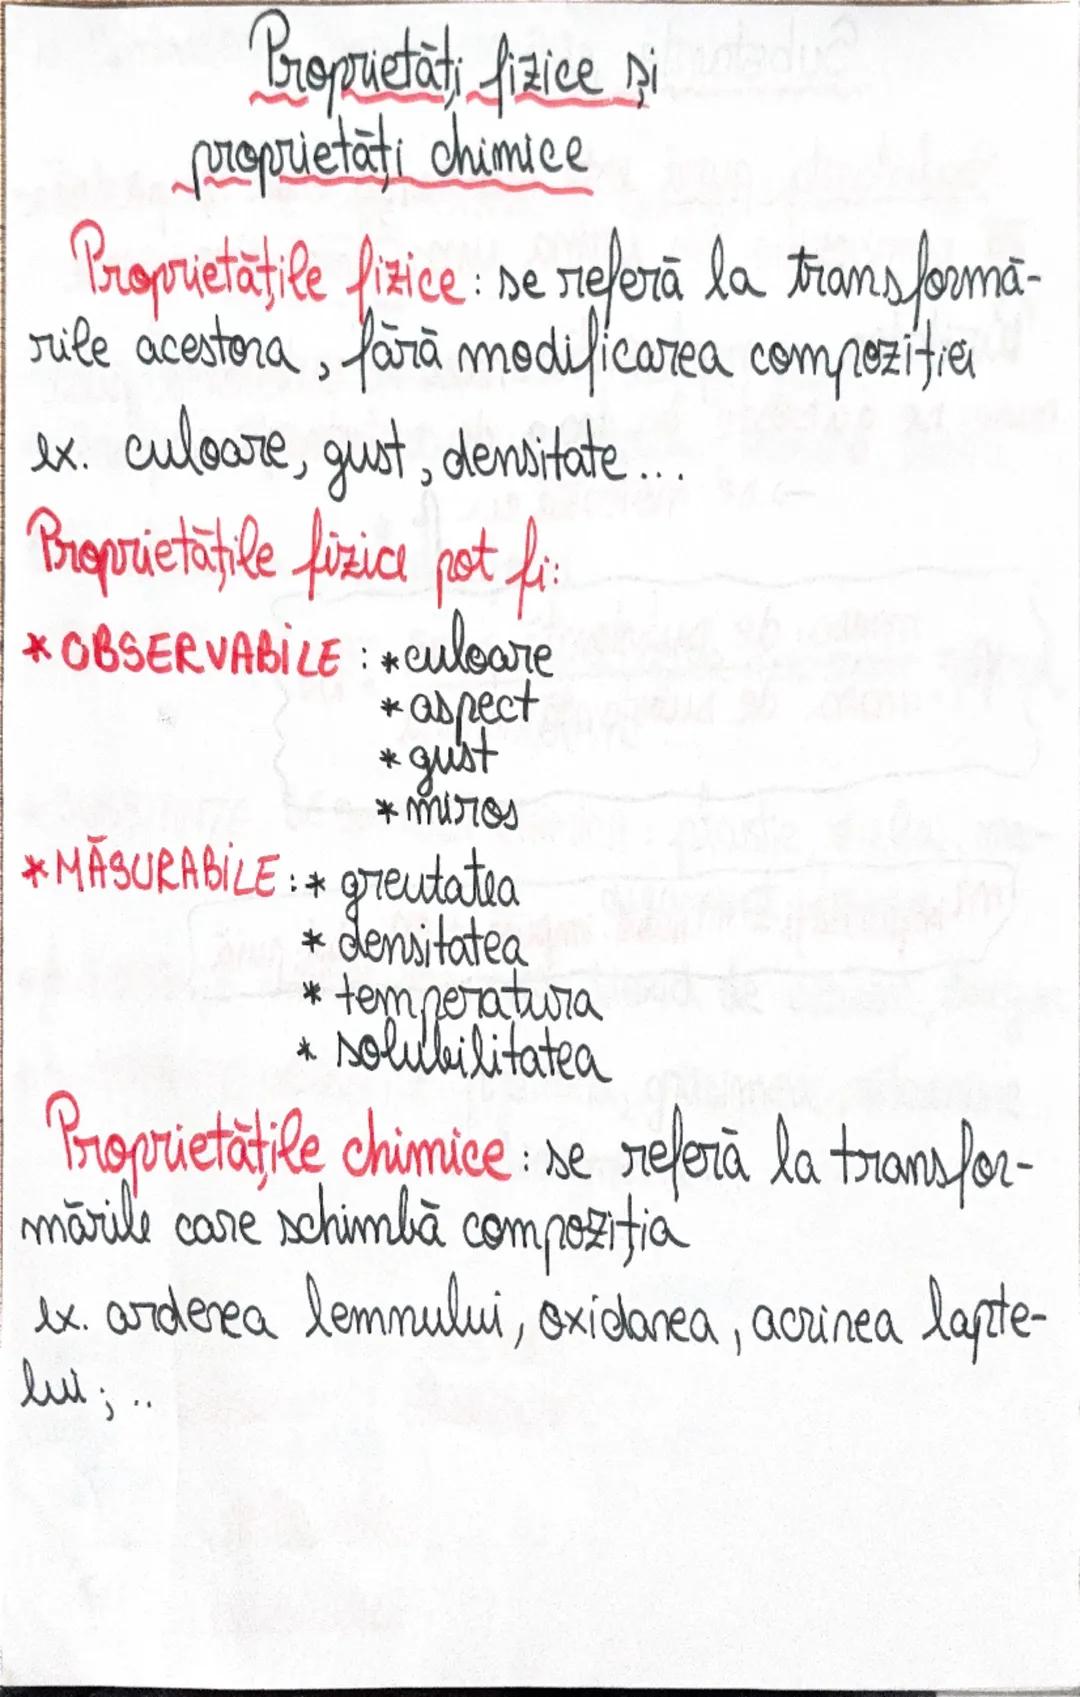 Proprietăți fizice și
proprietăți chimice
Proprietățile fizice: se referă la transformă-
rile acestora, fără modificarea compoziției
ex. culoare, gust, densitate...
Proprietățile fizice pot fi:
* OBSERVABILE: * culoare
* aspect
* gust
* miros
* MĂSURABILE: * greutatea
* densitatea
* temperatura
* solubilitatea
Proprietățile chimice: se referă la transfor-
mările care schimbă compoziția
ex. arderea lemnului, oxidarea, acrirea lapte-
lui; ..